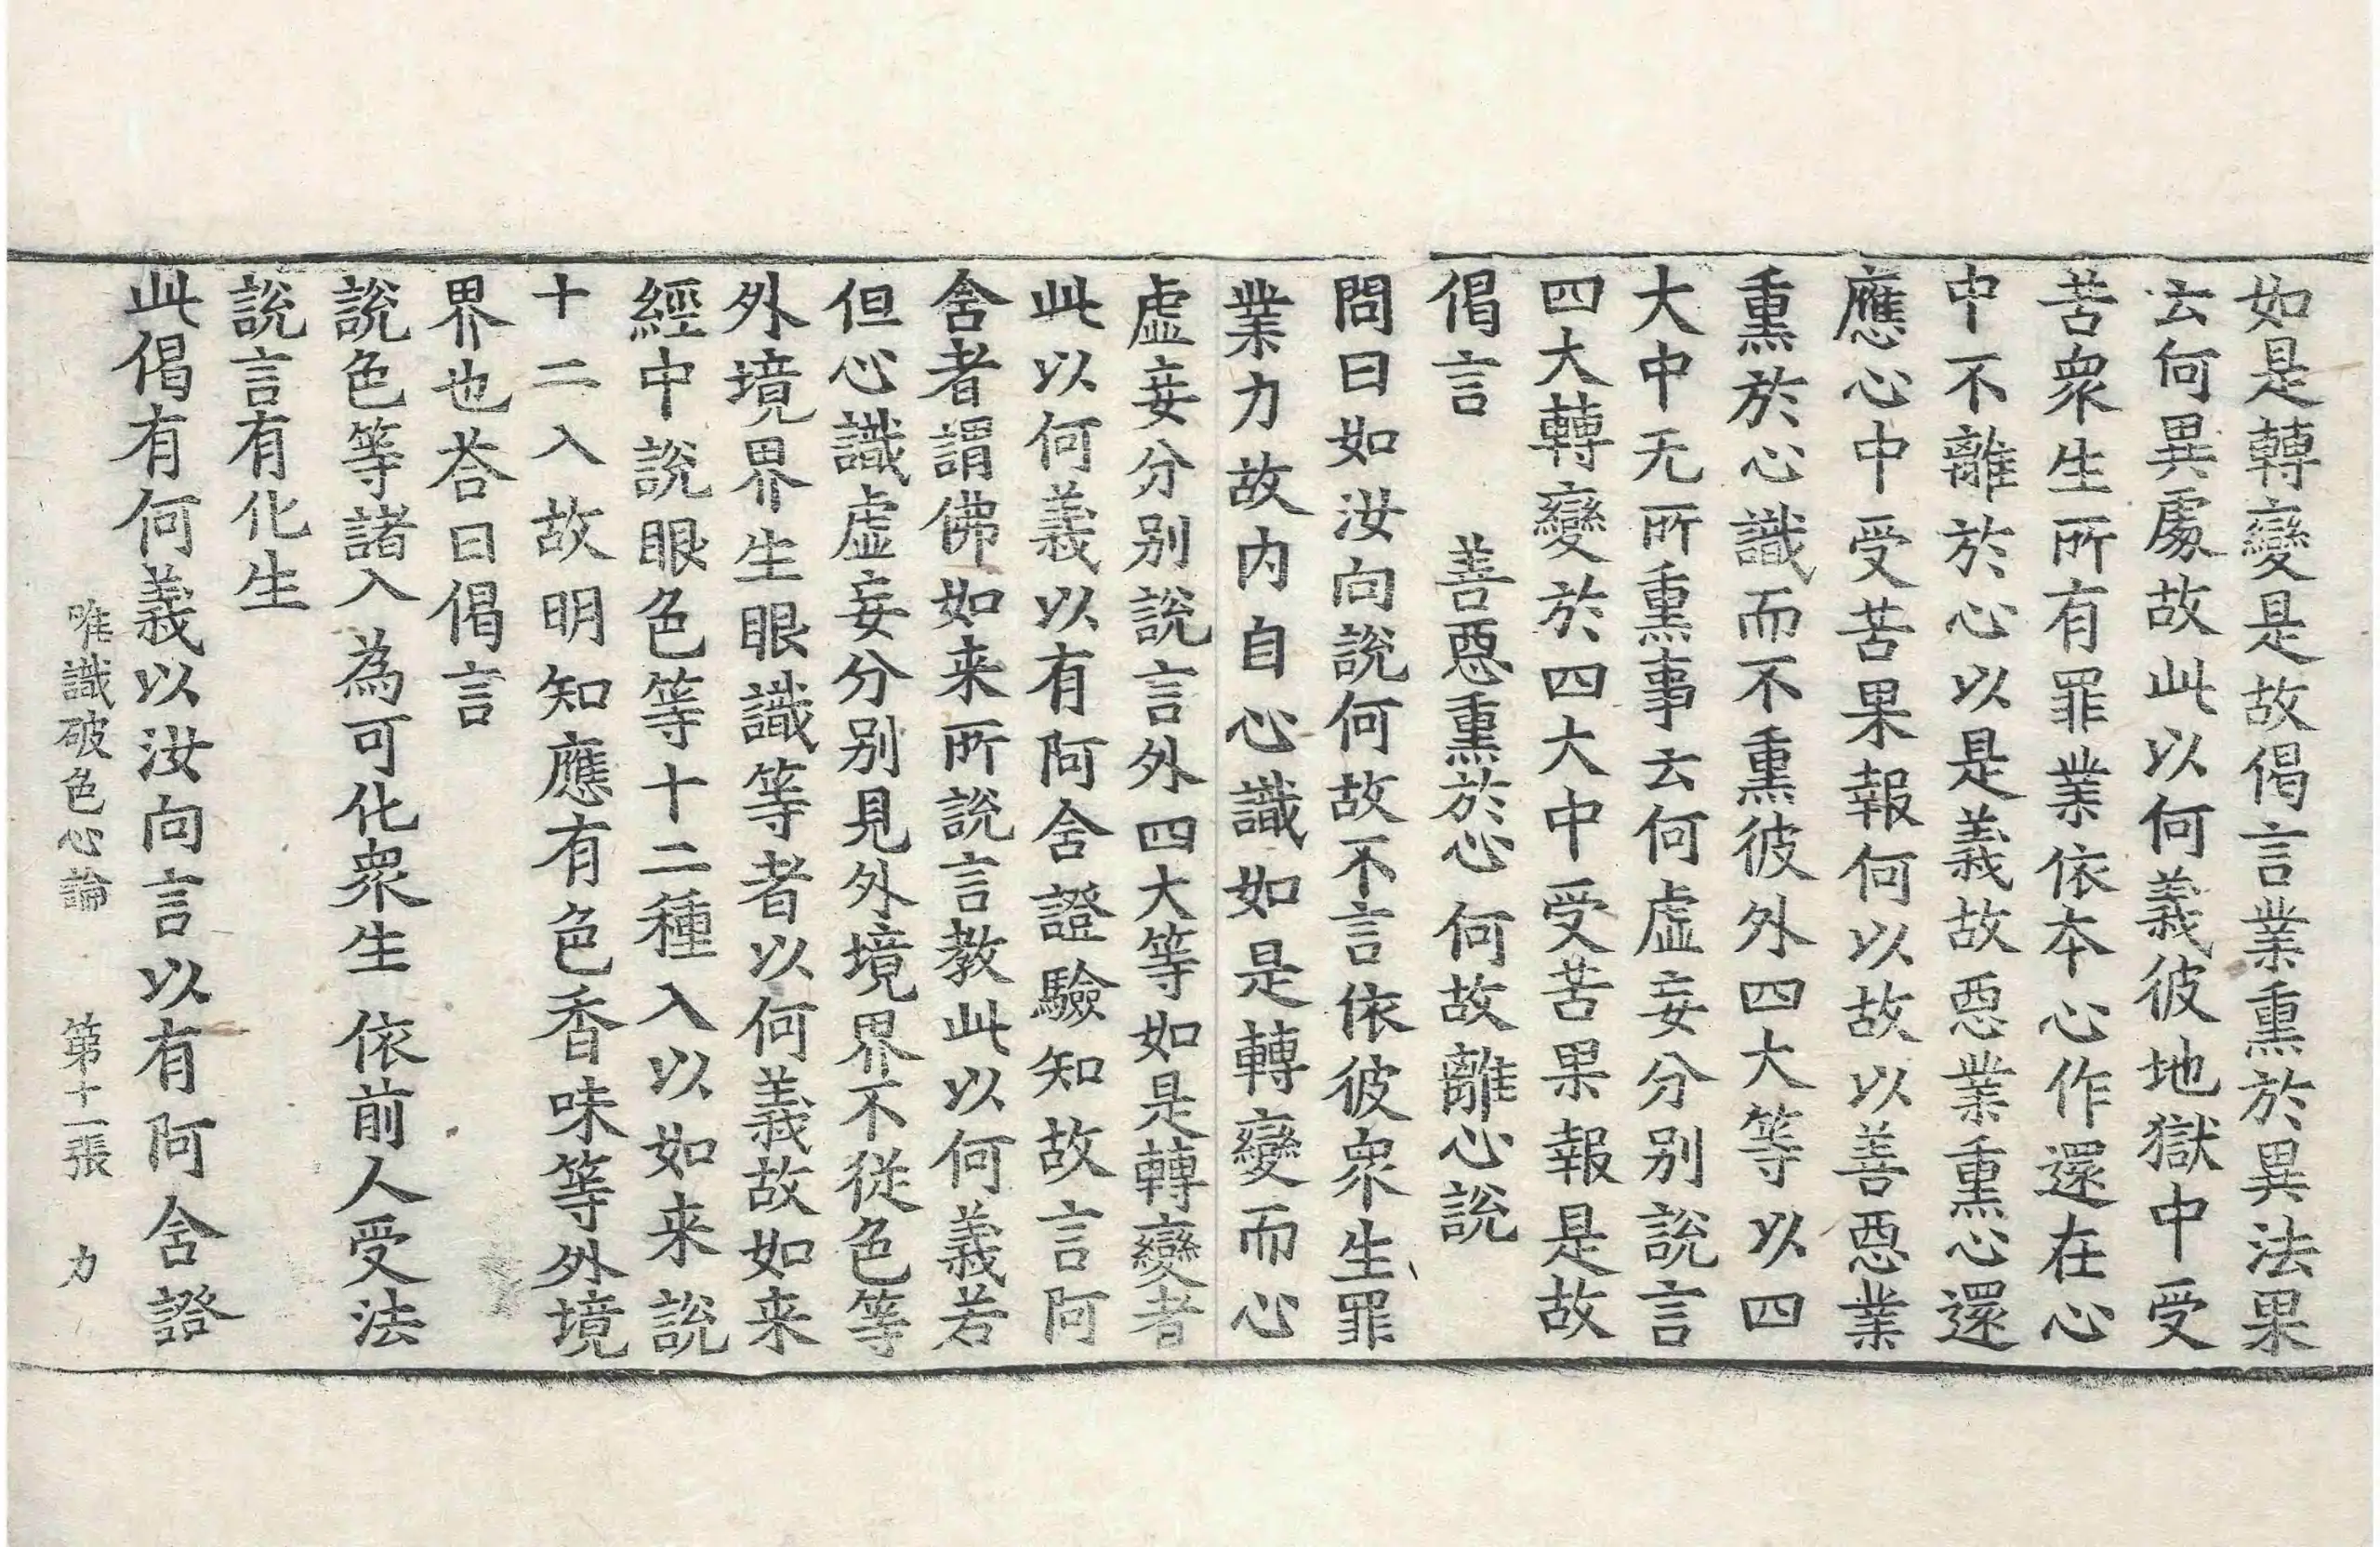 如是轉變是故偈言業熏於異法果
云何異處故此以何義彼地獄中受
苦衆生所有罪業依本心作還在心
中不離於心以是義故惡業熏心還
應心中受苦果報何以故以善惡業
熏於心識而不熏彼外四大等以四
大中无所熏事云何虛妄分别說言
四大轉變於四大中受苦果報是故
偈言　善惡熏於心　何故離心說
問曰如汝向說何故不言依彼衆生罪
業力故内自心識如是轉變而心
虛妄分别說言外四大等如是轉變者
此以何義以有阿含證驗知故言阿
含者謂佛如来所說言教此以何義若
但心識虛妄分别見外境界不從色等
外境界生眼識等者以何義故如来
經中說眼色等十二種入以如来說
十二入故明知應有色香味等外境
界也荅曰偈言
說色等諸入　為可化衆生　依前人受法
說言有化生
此偈有何義以汝向言以有阿含證
唯識破色心論　第十一張　力